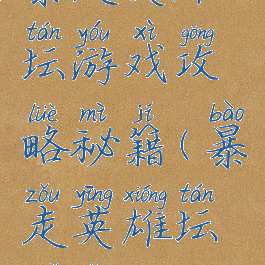 tán yóu xì gōng
坛游戏攻
lüè mì jí bào
略秘籍(暴
zǒu yīng xióng tán
走英雄坛